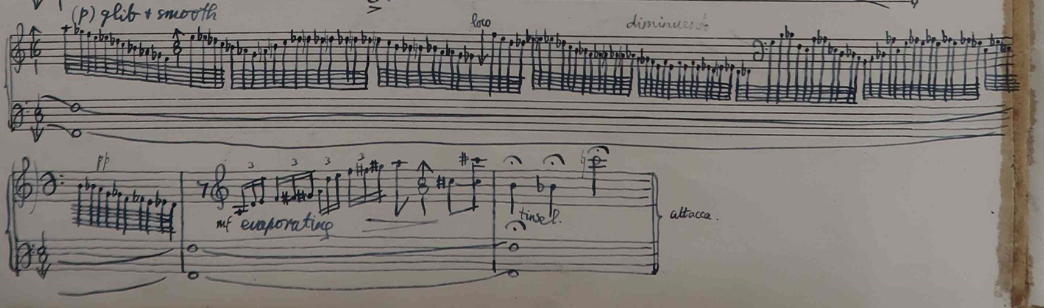 (p) glib + smooth
loco
diminuendo
pp
8
3 3 3 3
8
mf evaporating
tinsel.
attacca.